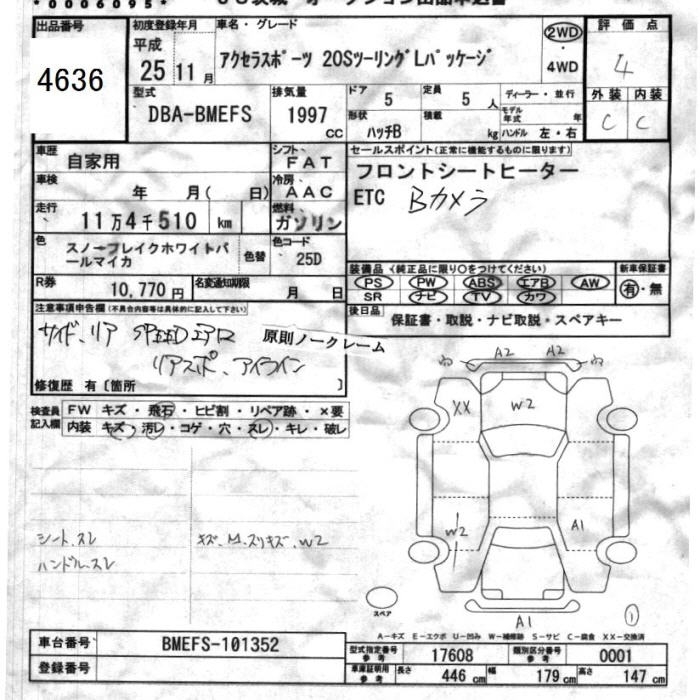 *0006095*
出品番号 4636
初度登録年月 平成 25 11月
車名・グレード アクセラスポーツ 20SツーリングLパッケージ
2WD・4WD
評価点 4
外装 内装 C C
型式 DBA-BMEFS
排気量 1997 CC
ドア 5 定員 5人 ディーラー・並行
形状 ハッチB 積載 kg モデル年式 年 ハンドル 左・右
車歴 自家用
シフト FAT
車検 年 月( 日)
冷房 AAC
走行 11万4千510 km
燃料 ガソリン
色 スノーフレイクホワイトパールマイカ 色替
色コード 25D
R券 10,770円 名変通知期限 月 日
セールスポイント(正常に機能するものに限ります)
フロントシートヒーター
ETC Bカメラ
装備品 (純正品に限り○をつけてください) 新車保証書
PS PW ABS エアB AW 有・無
SR ナビ TV カワ
後日品 保証書・取説・ナビ取説・スペアキー
注意事項申告欄(不具合内容等は具体的に記入して下さい)
サイド、リア SPEEDエアロ
リアスポ、アイライン
原則ノークレーム
修復歴 有〔箇所 〕
検査員記入欄 FW キズ・飛石・ヒビ割・リペア跡・×要
内装 キズ・汚レ・コゲ・穴・スレ・キレ・破レ
シート、スレ
ハンドル、スレ
キズ、M、スリキズ、W2
A2 A2
XX W2
W2 A1
スペア
A1
①
A-キズ E-エクボ U-凹み W-補修跡 S-サビ C-腐食 XX-交換済
車台番号 BMEFS-101352
登録番号
型式指定番号 参考 17608 類別区分番号 参考 0001
車庫証明用 参考 長さ 446 cm 幅 179 cm 高さ 147 cm